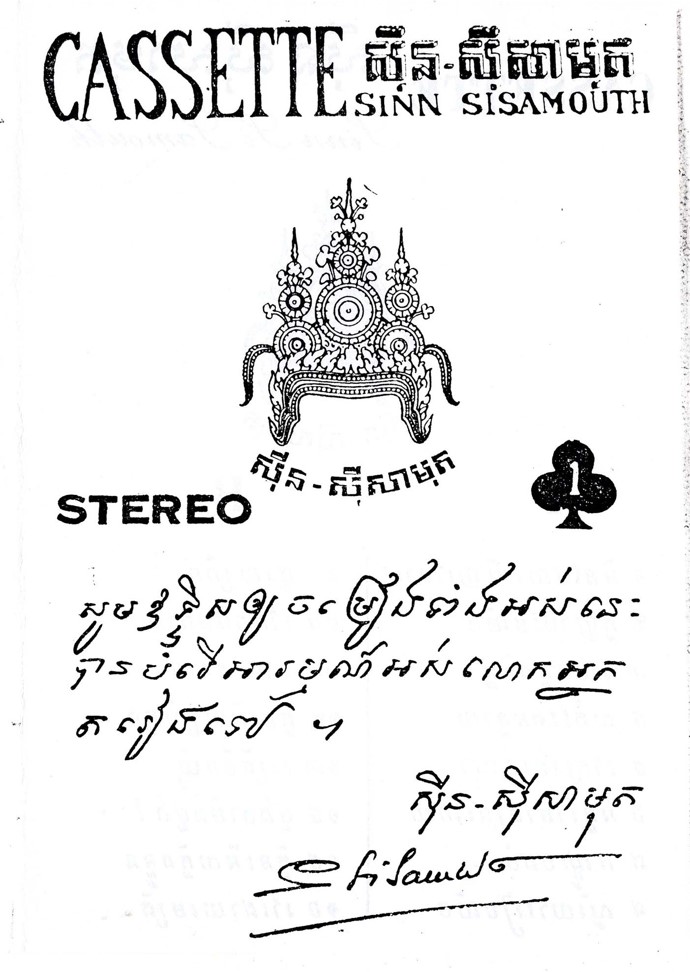 CASSETTE ស៊ីន-ស៊ីសាមុត
SINN SISAMOUTH
ស៊ីន-ស៊ីសាមុត
STEREO
1
សូមឧទ្ទិសឲ្យចម្រៀងទាំងអស់នេះ
បានបំរើអារម្មណ៍អស់លោកអ្នក
តរៀងទៅ ។
ស៊ីន-ស៊ីសាមុត